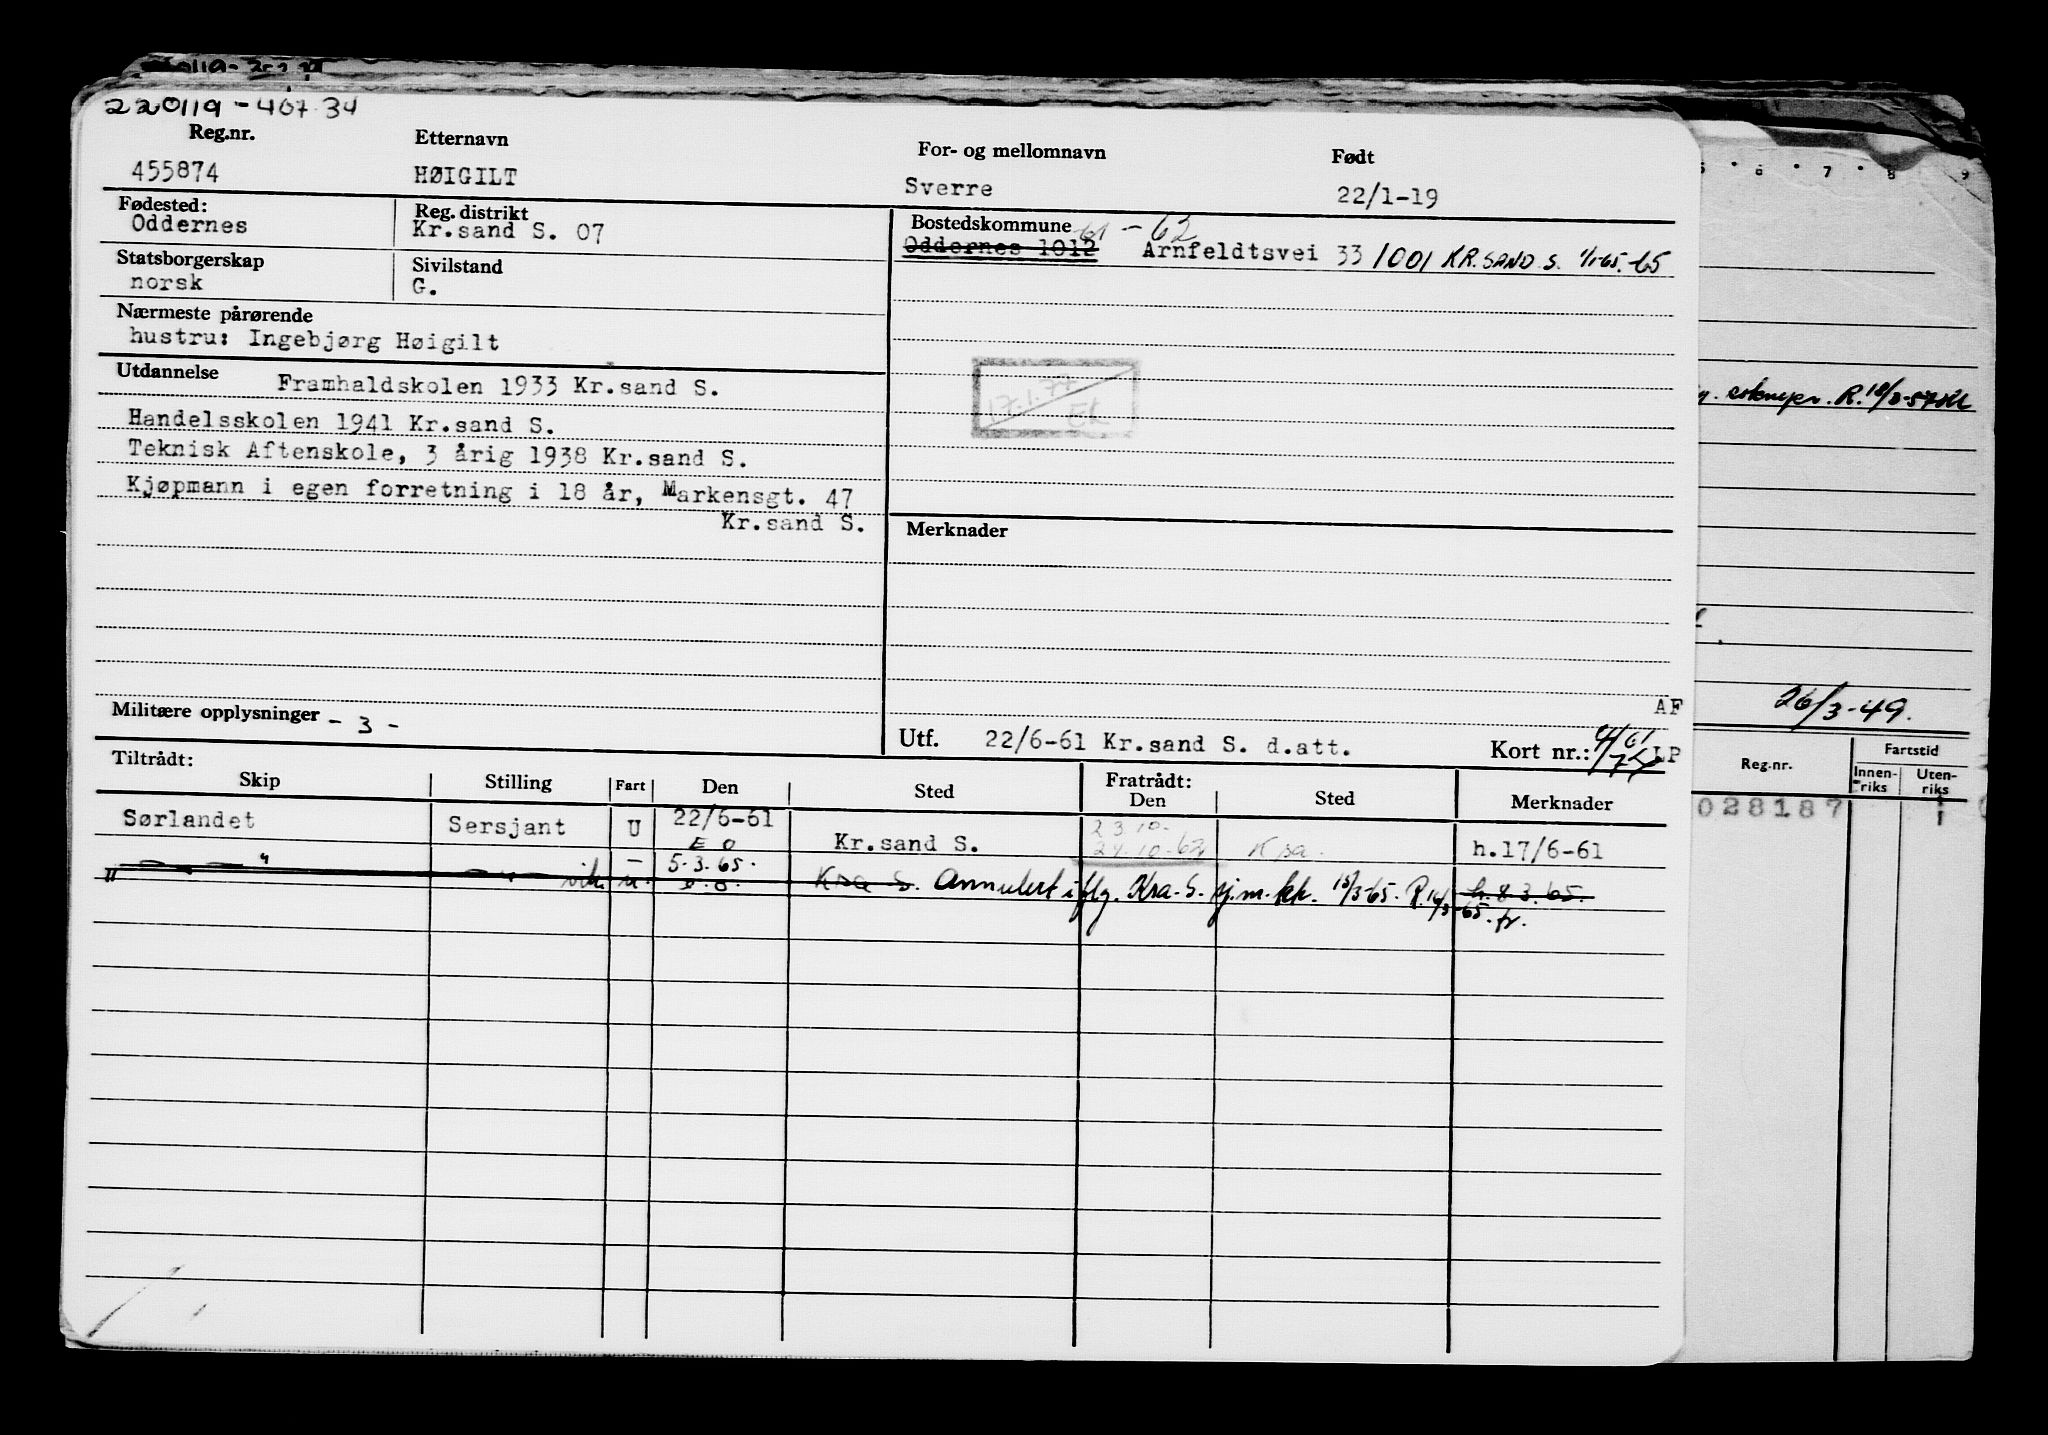 220119 - 407 34
Reg.nr. Etternavn For- og mellomnavn Født
455874 HØIGILT Sverre 22/1-19
Fødested: Reg. distrikt Bostedskommune 61 - 62
Oddernes Kr.sand S. 07 Oddernes 1012 Arnfeldtsvei 33 /1001 KR.SAND S. 1/1-65. 65
Statsborgerskap Sivilstand
norsk G.
Nærmeste pårørende
hustru: Ingebjørg Høigilt
Utdannelse Framhaldskolen 1933 Kr.sand S.
Handelsskolen 1941 Kr.sand S.
Teknisk Aftenskole, 3 årig 1938 Kr.sand S.
Kjøpmann i egen forretning i 18 år, Markensgt. 47
Kr.sand S.
17.1.77
EL
Merknader
AF
Militære opplysninger - 3 -
Utf. 22/6-61 Kr.sand S. d.att. Kort nr.: LP
Tiltrådt: Fratrådt:
Skip Stilling Fart Den Sted Den Sted Merknader
Sørlandet Sersjant U 22/6-61 Kr.sand S. 23.10. 24.10-62 Ksa. h.17/6-61
E O
" — " — 5.3.65. Ksa S. Annulert iflg. Ksa. S. sj.m.kk. 15/3-65. R.16/3-65. fr. h. 8.3.65.
5 6 7 8 9
R. 18/3-57
26/3-49.
Reg.nr. Fartstid
Innen-riks Uten-riks
028187 1